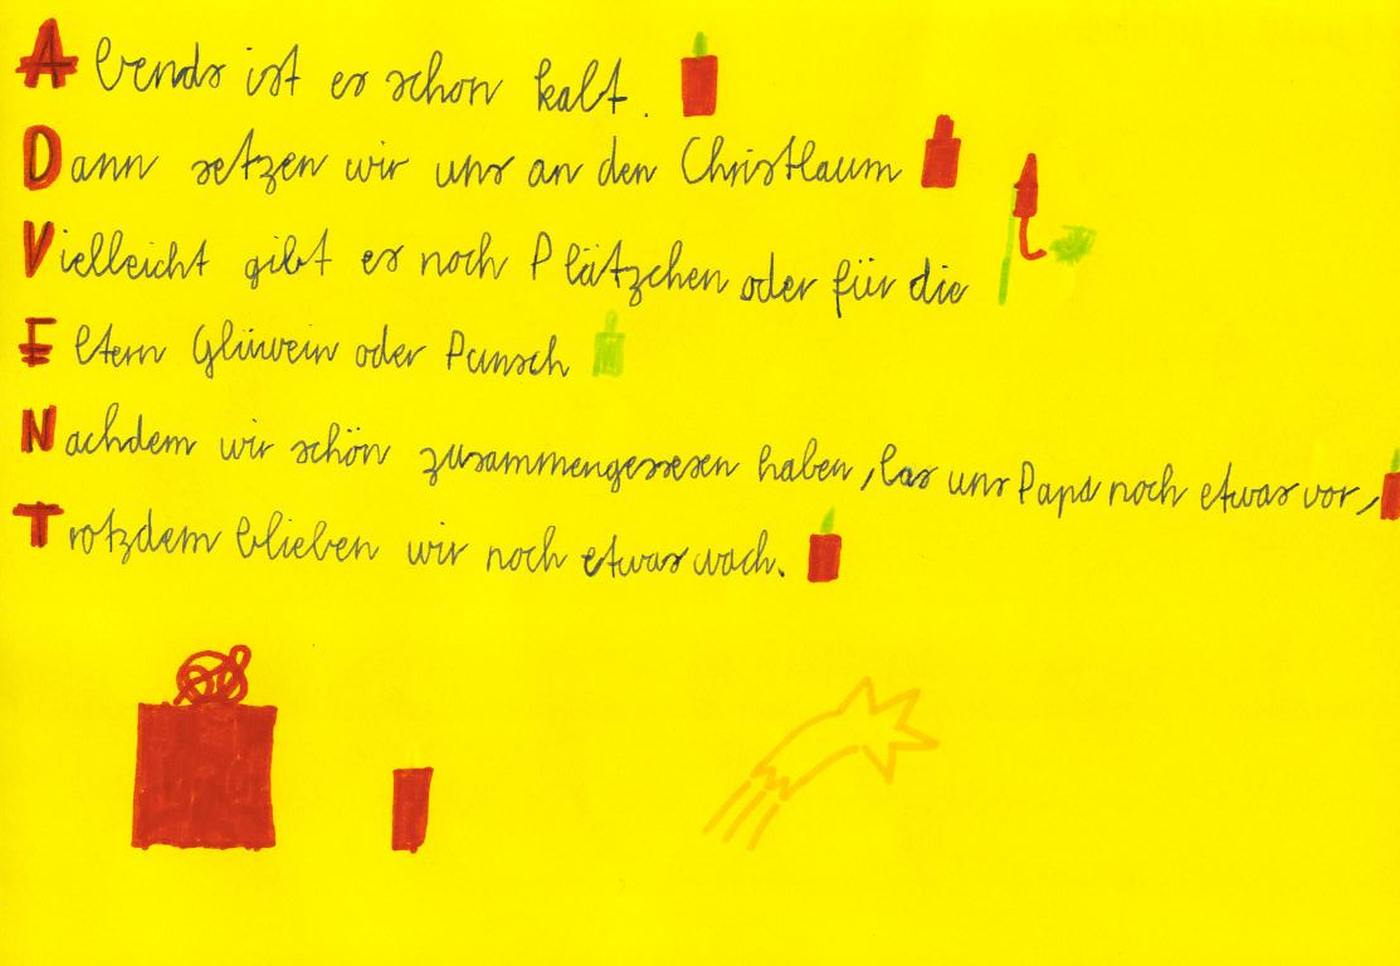 Abends ist es schon kalt.
Dann setzen wir uns an den Christbaum
Vielleicht gibt es noch Plätzchen oder für die
Eltern Glüwein oder Punsch
Nachdem wir schön zusammengesessen haben, las uns Papa noch etwas vor,
Trotzdem blieben wir noch etwas wach.